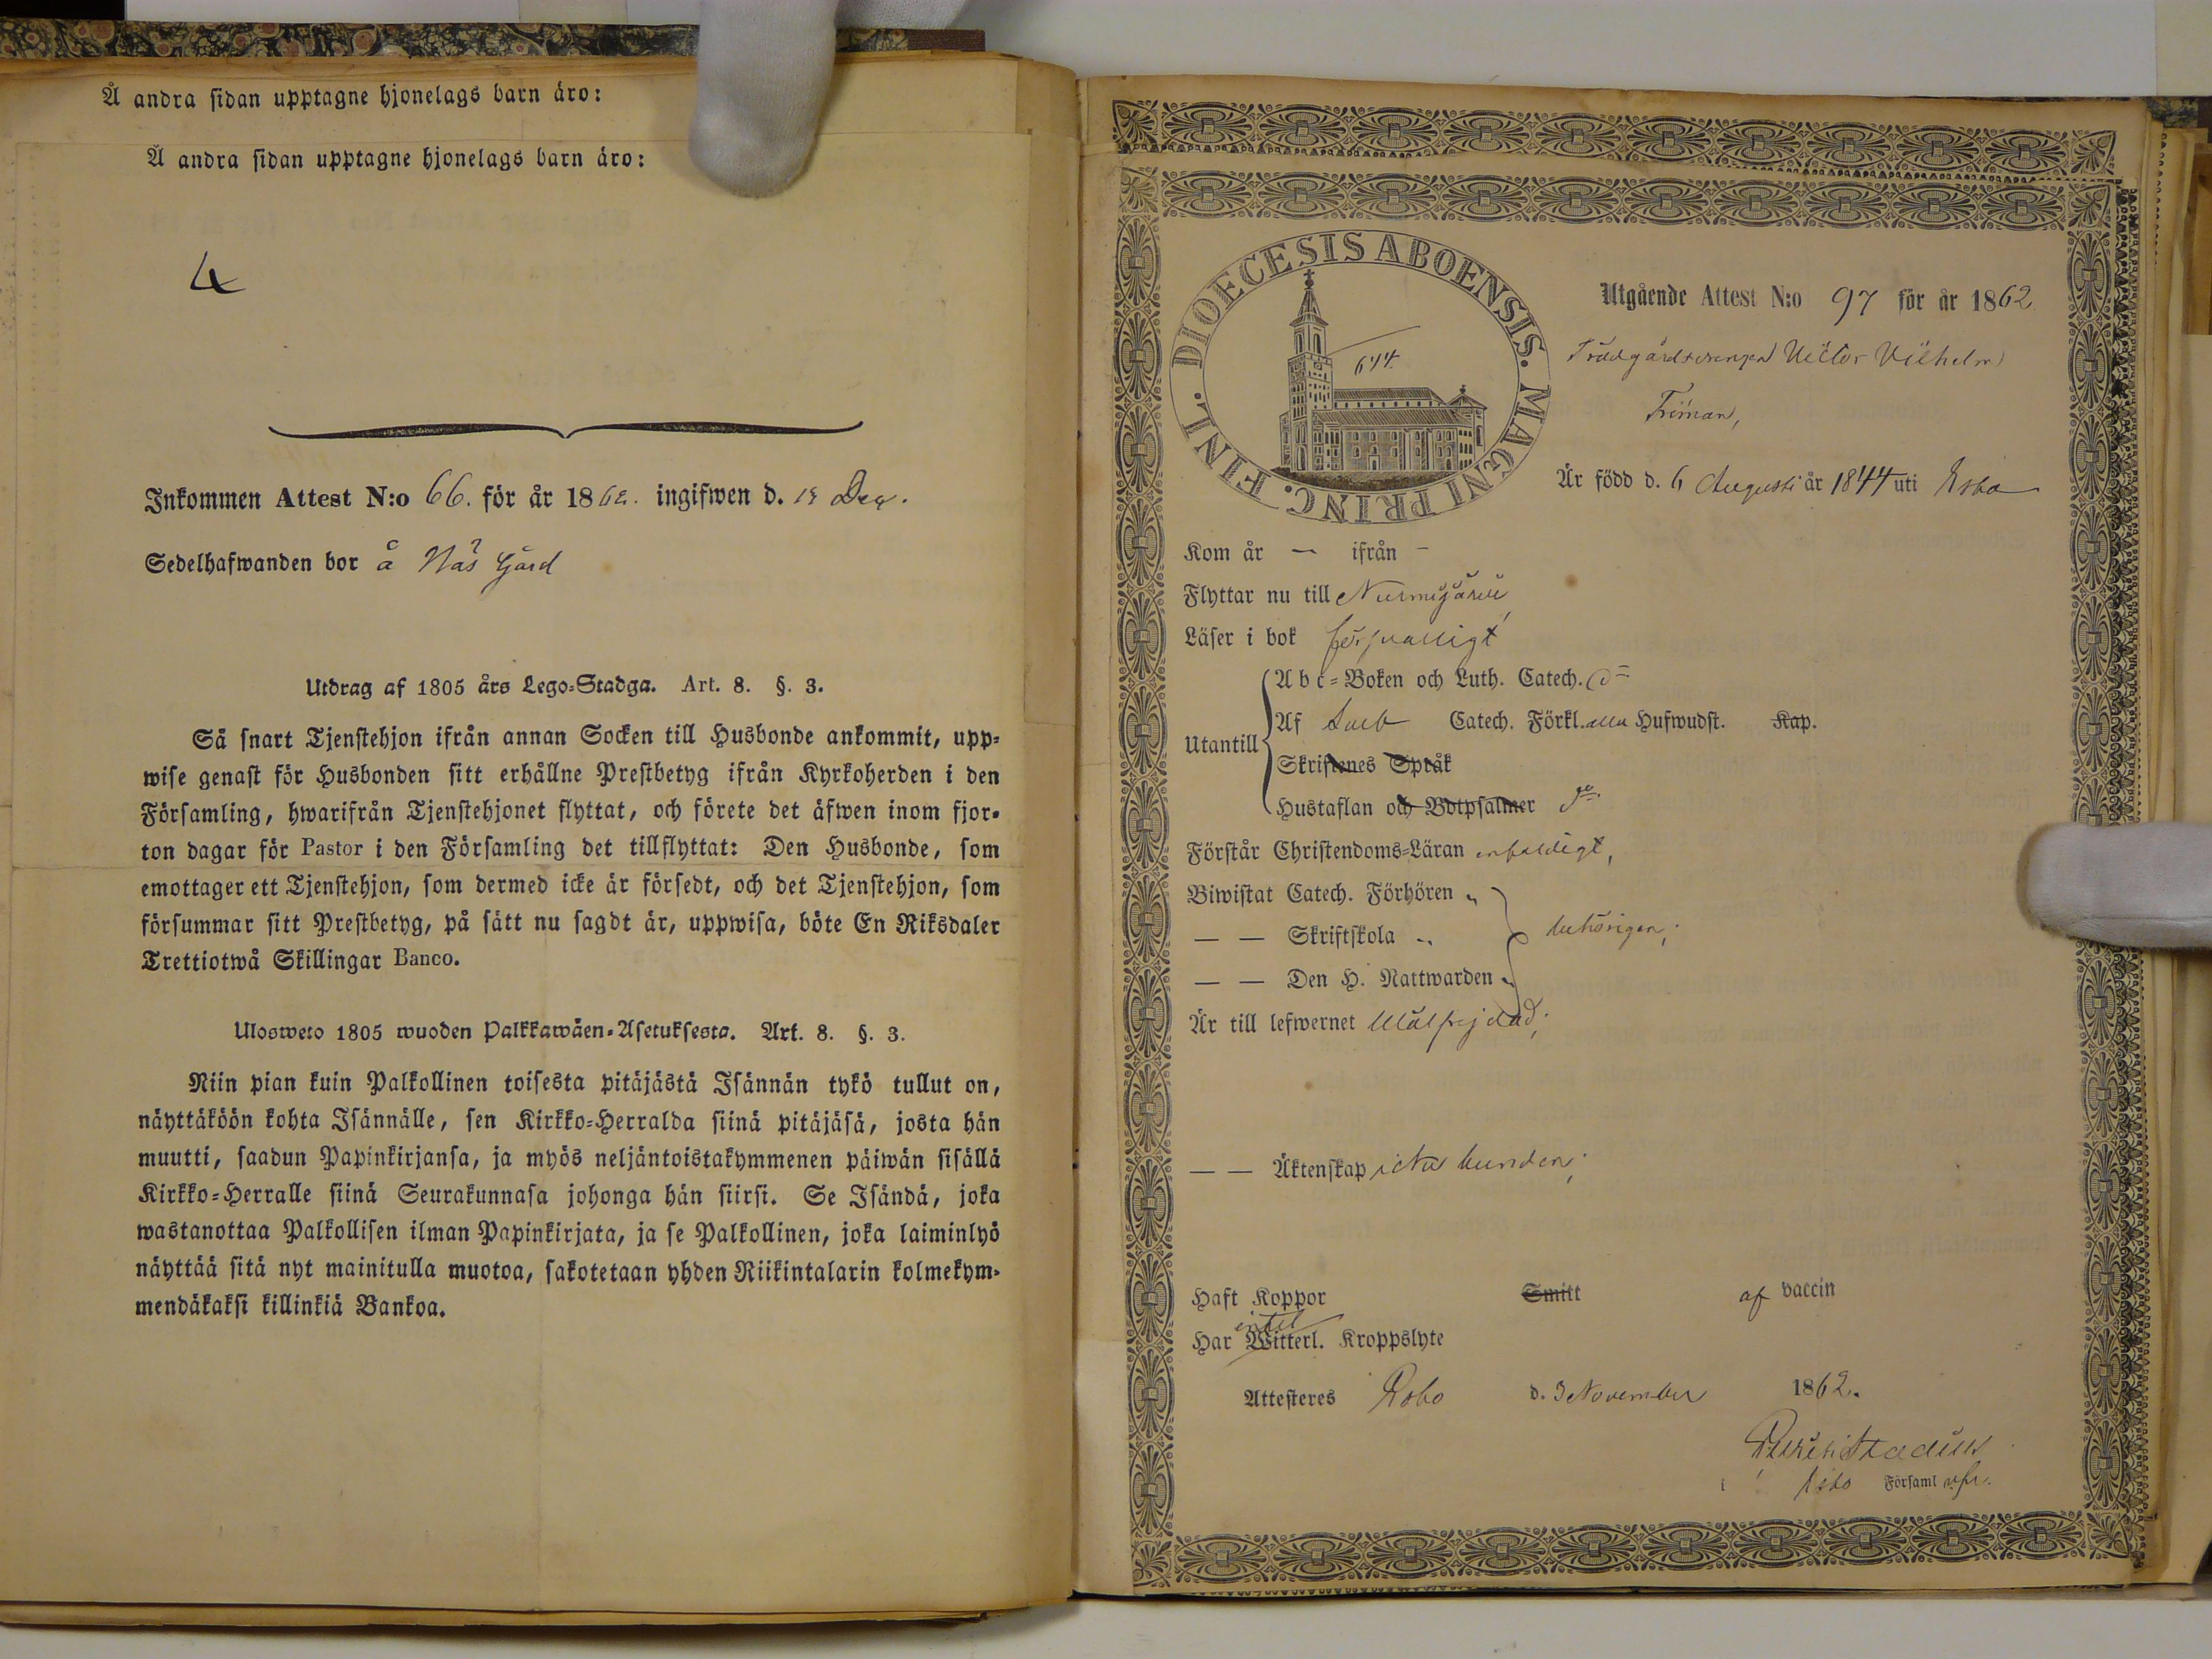 Å andra sidan upptagne hjonelags barn äro:
Å andra sidan upptagne hjonelags barn äro:
4
Inkommen Attest N:o 66. för år 1862. ingifwen d. 18 Dec.
Sedelhafwanden bor å Näs Gård
Utdrag af 1805 års Lego-Stadga. Art. 8. §. 3.
Så snart Tjenstehjon ifrån annan Socken till Husbonde ankommit, upp-
wise genast för Husbonden sitt erhållne Prestbetyg ifrån Kyrkoherden i den
Församling, hwarifrån Tjenstehjonet flyttat, och förete det äfwen inom fjor-
ton dagar för Pastor i den Församling det tillflyttat: Den Husbonde, som
emottager ett Tjenstehjon, som dermed icke är försedt, och det Tjenstehjon, som
försummar sitt Prestbetyg, på sätt nu sagdt är, uppwisa, böte En Riksdaler
Trettiotwå Skillingar Banco.
Ulosweto 1805 wuoden Palkkawäen-Asetuksesta. Art. 8. §. 3.
Niin pian kuin Palkollinen toisesta pitäjästä Isännän tykö tullut on,
näyttäköön kohta Isännälle, sen Kirkko-Herralda siinä pitäjäsä, josta hän
muutti, saadun Papinkirjansa, ja myös neljäntoistakymmenen päiwän sisällä
Kirkko-Herralle siinä Seurakunnasa johonga hän siirsi. Se Isändä, joka
wastanottaa Palkollisen ilman Papinkirjata, ja se Palkollinen, joka laiminlyö
näyttää sitä nyt mainitulla muotoa, sakotetaan yhden Riikintalarin kolmekym-
mendäkaksi killinkiä Bankoa.
DIOECESIS ABOENSIS. MAGNI PRINC. FINL.
644.
Utgående Attest N:o 97 för år 1862
Trädgårdsdrengen Victor Vilhelm
Friman,
Är född d. 6 Augusti år 1844 uti Esbo
Kom år — ifrån —
Flyttar nu till Nurmijärvi
Läser i bok försvarligt
Utantill
Abc-Boken och Luth. Catech. do
Af Sveb Catech. Förkl. alla Hufwudst. Kap.
Skriftenes Språk
Hustaflan och Botpsalmer do
Förstår Christendoms-Läran enfaldigt,
Biwistat Catech. Förhören
— — Skriftskola
behörigen;
— — Den H. Nattwarden
Är till lefwernet Wälfrejdad;
— — Äktenskap icke bunden;
Haft Koppor Smitt af vaccin
intet
Har Witterl. Kroppslyte
Attesteres Esbo d. 3 November 1862.
Stadius
i Esbo Församl